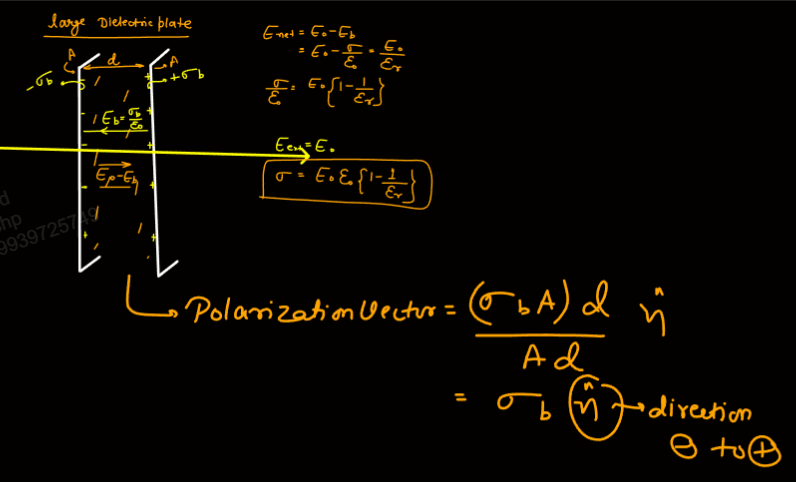 large Dielectric plate
A d A
-σb +σb
Eb = σb/ε0
E0-Eb
Enet = E0 - Eb
= E0 - σ/ε0 = E0/εr
σ/ε0 = E0{1 - 1/εr}
Eext = E0
σ = E0 ε0 {1 - 1/εr}
d
hp
9939725749
Polarization Vector = (σb A) d / A d n̂
= σb n̂ → direction
⊖ to ⊕